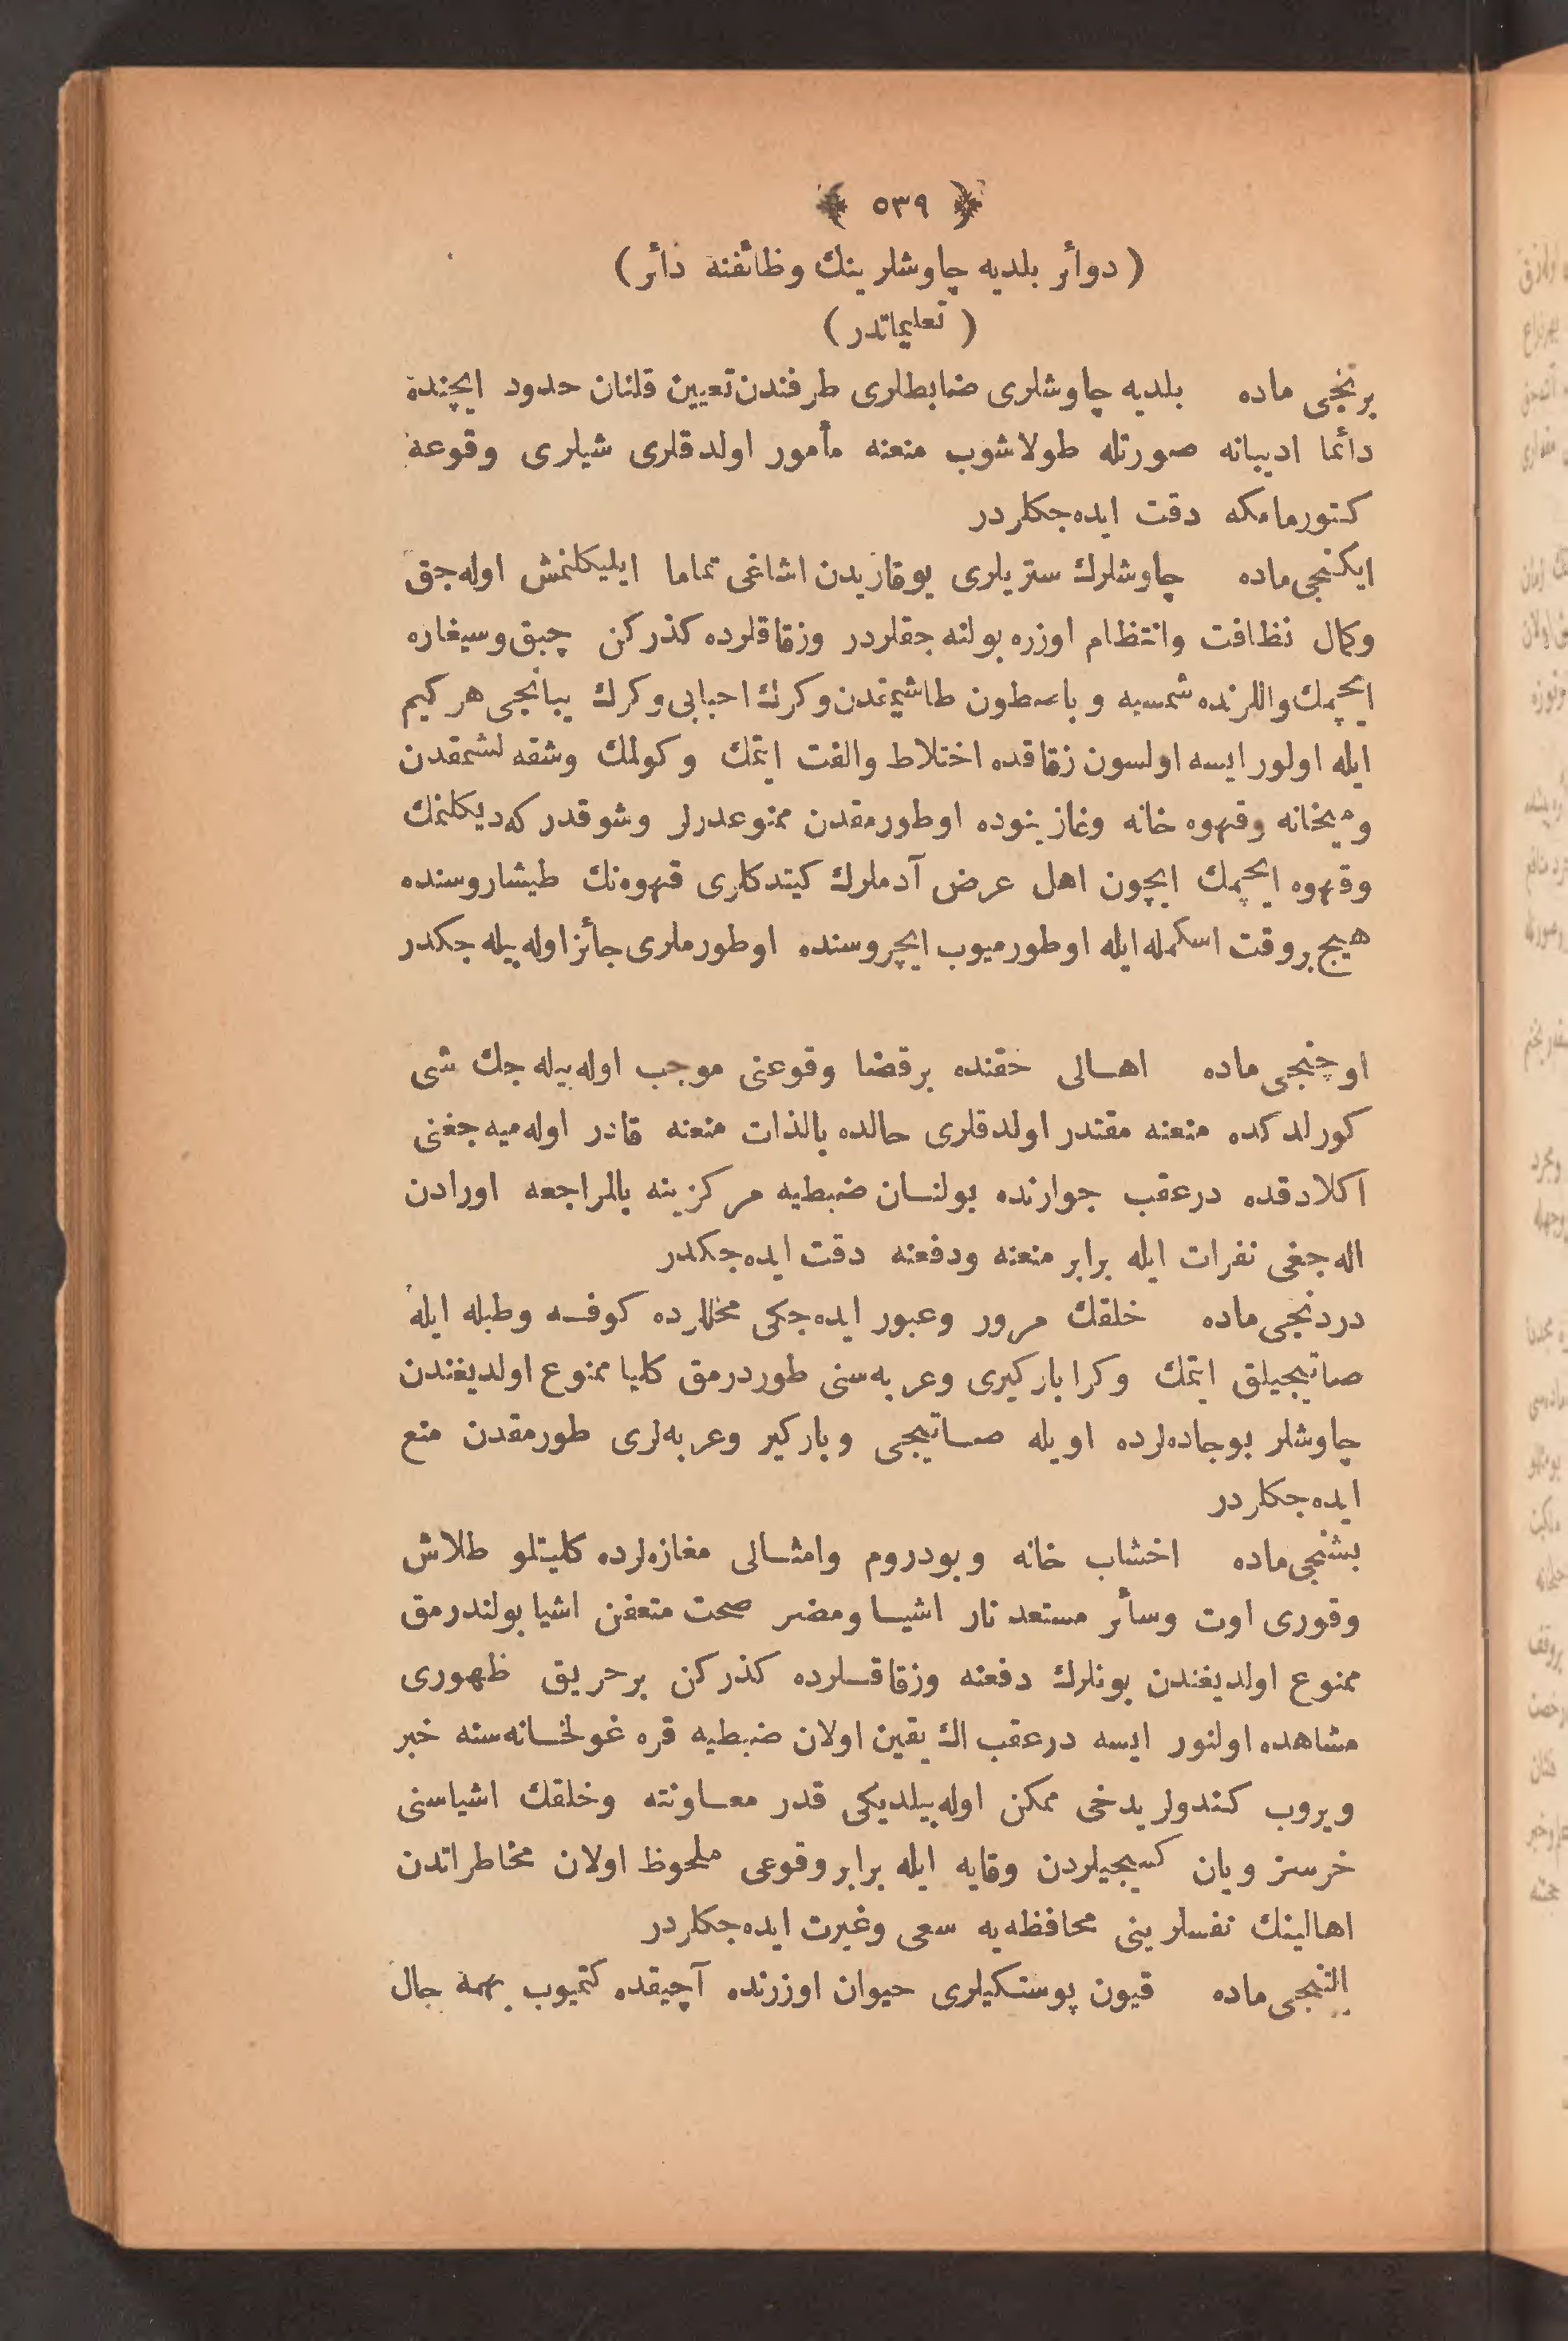 ﴾ ٥٣٩ ﴿
( دوائر بلديه چاوشلرينك وظائفنه دائر )
( تعليماتدر )
برنجى ماده بلديه چاوشلرى ضابطلرى طرفندن تعيين قلنان حدود ايچنده
دائما اديبانه صورتله طولاشوب منعنه مأمور اولدقلرى شيلرى وقوعه
كتورمامكه دقت ايده‌جكلردر
ايكنجى ماده چاوشلرك ستريلرى يوقاريدن اشاغى تماما ايليكلنمش اوله‌جق
وكمال نظافت وانتظام اوزره بولنه‌جقلردر وزقاقلرده كذركن چبق وسيغاره
ايچمك واللرنده شمسيه و باسطون طاشيمقدن وكرك احبابى وكرك يبانجى هركيم
ايله اولور ايسه اولسون زقاقده اختلاط والفت ايتمك وكولمك وشقه‌لشمقدن
وميخانه وقهوه خانه وغازينوده اوطورمقدن ممنوعدرلر وشوقدركه ديكلنمك
وقهوه ايچمك ايچون اهل عرض آدملرك كيتدكلرى قهوه‌نك طيشاروسنده
هيچ بروقت اسكمله ايله اوطورميوب ايچروسنده اوطورملرى جائز اوله‌بيله‌جكدر
اوچنجى ماده اهالى حقنده برقضا وقوعنى موجب اوله‌بيله‌جك شى
كورلدكده منعنه مقتدر اولدقلرى حالده بالذات منعنه قادر اوله‌ميه‌جغنى
اكلادقده درعقب جوارنده بولنان ضبطيه مركزينه بالمراجعه اورادن
اله‌جغى نفرات ايله برابر منعنه ودفعنه دقت ايده‌جكدر
دردنجى ماده خلقك مرور وعبور ايده‌جكى محللرده كوفه وطبله ايله
صاتيجيلق ايتمك وكرا باركيرى وعربه‌سنى طوردرمق كليا ممنوع اولديغندن
چاوشلر بوجاده‌لرده اويله صاتيجى وباركير وعربه‌لرى طورمقدن منع
ايده‌جكلردر
بشنجى ماده اخشاب خانه وبودروم وامثالى مغازه‌لرده كليتلو طلاش
وقورى اوت وسائر مستعد نار اشيا ومضر صحت متعفن اشيا بولندرمق
ممنوع اولديغندن بونلرك دفعنه وزقاقلرده كذركن برحريق ظهورى
مشاهده اولنور ايسه درعقب اك يقين اولان ضبطيه قره‌غولخانه‌سنه خبر
ويروب كندولريدخى ممكن اوله‌بيلديكى قدر معاونته وخلقك اشياسنى
خرسز ويان كسيجيلردن وقايه ايله برابر وقوعى ملحوظ اولان مخاطراتدن
اهالينك نفسلرينى محافظه‌يه سعى وغيرت ايده‌جكلردر
التنجى ماده قيون پوستكيلرى حيوان اوزرنده آچيقده كتميوب بهمه جال